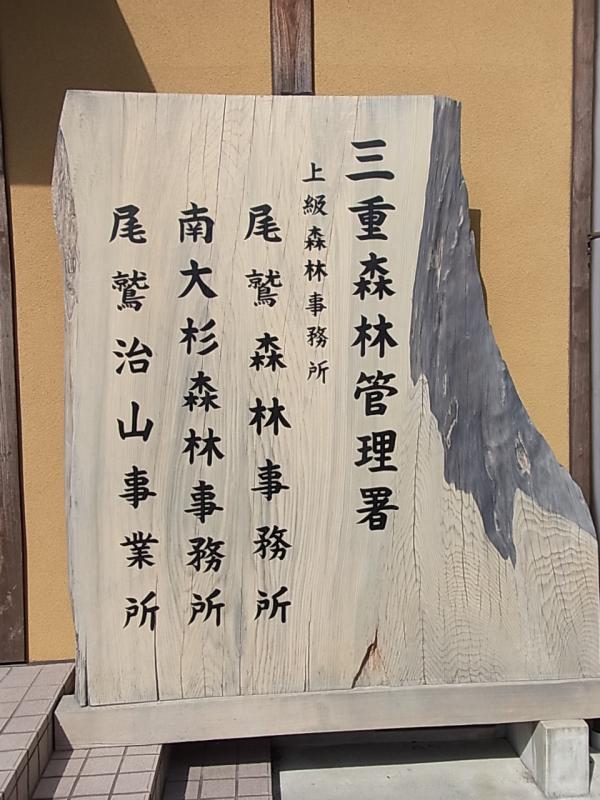 三重森林管理署
上級森林事務所
尾鷲森林事務所
南大杉森林事務所
尾鷲治山事業所